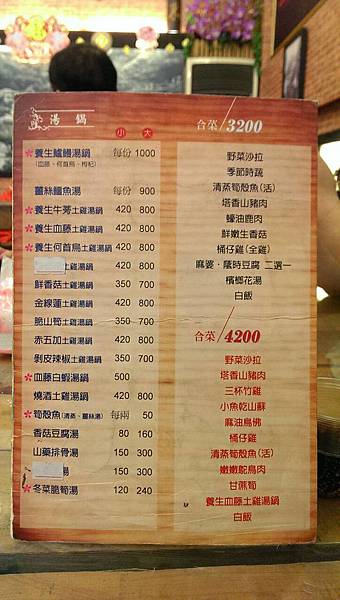 湯鍋
小 大
養生鱸鰻湯鍋 每份 1000
(血藤、何首烏、枸杞)
薑絲鱷魚湯 每份 900
養生牛蒡土雞湯鍋 420 800
養生血藤土雞湯鍋 420 800
養生何首烏土雞湯鍋 420 800
土雞湯鍋 420 800
鮮香菇土雞湯鍋 350 700
金線蓮土雞湯鍋 420 800
脆山筍土雞湯鍋 350 700
赤五加土雞湯鍋 420 800
剝皮辣椒土雞湯鍋 350 700
血藤白蝦湯鍋 500
燒酒土雞湯鍋 420 800
筍殼魚(清蒸、薑絲湯) 每兩 50
香菇豆腐湯 80 160
山藥排骨湯 150 300
湯 150 300
冬菜脆筍湯 120 240
合菜/3200
野菜沙拉
季節時蔬
清蒸筍殼魚(活)
塔香山豬肉
蠔油鹿肉
鮮嫩生香菇
桶仔雞(全雞)
麻婆、蔭豉豆腐 二選一
檳榔花湯
白飯
合菜/4200
野菜沙拉
塔香山豬肉
三杯竹雞
小魚乾山蘇
麻油鳥佛
桶仔雞
清蒸筍殼魚(活)
嫩嫩鴕鳥肉
甘蔗筍
養生血藤土雞湯鍋
白飯